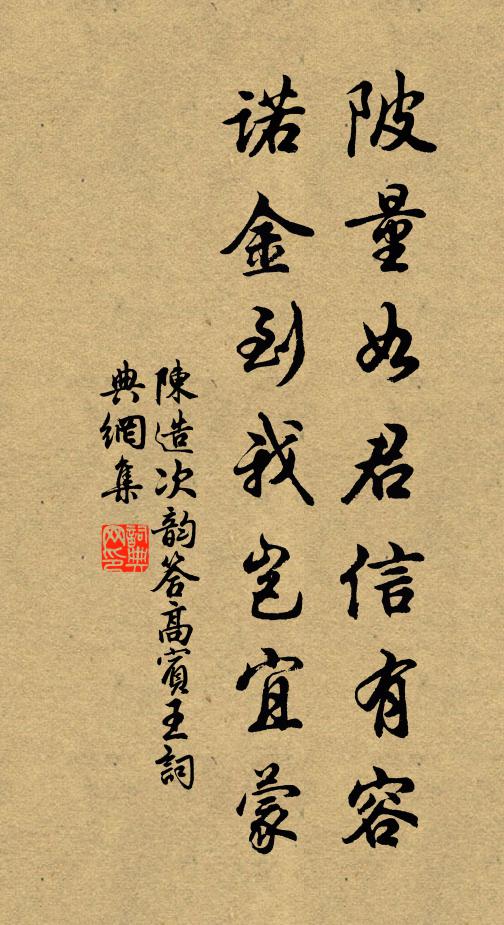 陂量如君信有容
諾金到我豈宜蒙
陳造次韵答高賓王詞
典網集
詞典
网印